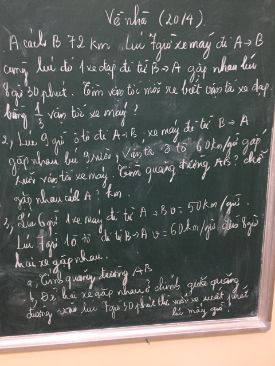 Về nhà (20/4).
A cách B 72 km. Lúc 7giờ xe máy đi từ A → B
cùng lúc đó 1 xe đạp đi từ B → A gặp nhau lúc
8giờ 30 phút. Tìm vận tốc mỗi xe biết vận tốc xe đạp
bằng 1/3 vận tốc xe máy?
2, Lúc 9 giờ ô tô đi A → B; xe máy đi từ B → A
gặp nhau lúc 9 . Vận tốc ô tô 60km/giờ gấp
vận tốc xe máy. Tính quãng đường AB? chỗ
gặp nhau cách A ? km.
3, Lúc 6giờ 1 xe máy đi từ A → B v = 50km/giờ.
Lúc 7giờ 1 ô tô đi từ B → A v = 60km/giờ. đến 8giờ
hai xe gặp nhau.
a, Tính quãng đường AB
b, Để hai xe gặp nhau ở chính giữa quãng
đường vào lúc 7giờ 30phút thì mỗi xe xuất phát
lúc mấy giờ?